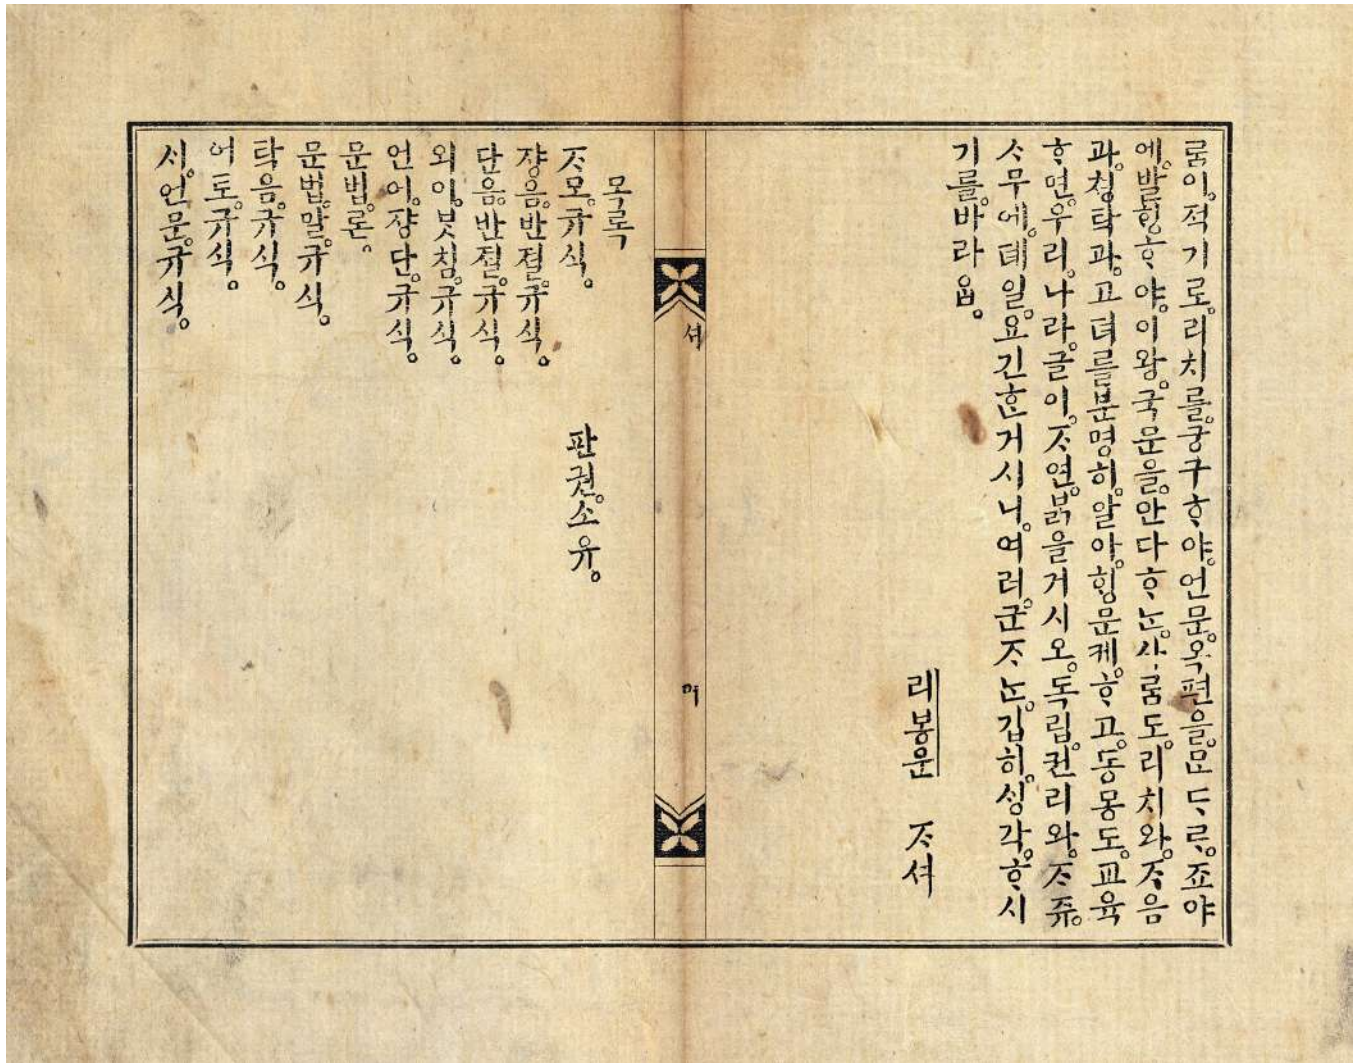 룸이。적기로。리치를。궁구ᄒᆞ야。언문。옥편을。ᄆᆞᆫᄃᆞ러。죠야
에。발ᄒᆡᆼᄒᆞ야。이왕。국문을。안다ᄒᆞᄂᆞᆫ。사ᄅᆞᆷ도。리치와。ᄌᆞ음
과。청탁과。고뎌를분명히。알아。ᄒᆡᆼ문케。ᄒᆞ고。동몽도。교육
ᄒᆞ면。우리。나라。글이。ᄌᆞ연。ᄇᆞᆰ을거시오。독립。권리와。ᄌᆞ쥬。
ᄉᆞ무에。뎨일。요긴ᄒᆞᆫ거시니。여러。군ᄌᆞᄂᆞᆫ。깁히。ᄉᆡᆼ각。ᄒᆞ시
기를。바라ᄋᆞᆸ。
리봉운 ᄌᆞ셔
셔
목록
ᄌᆞ모。규식。
쟝음。반졀。규식。
단음。반졀。규식。
외이。붓침。규식。
언어。쟝단。규식。
문법。론。
문법。말。규식。
탁음。규식。
어토。규식。
시。언문。규식。
판권。소유。